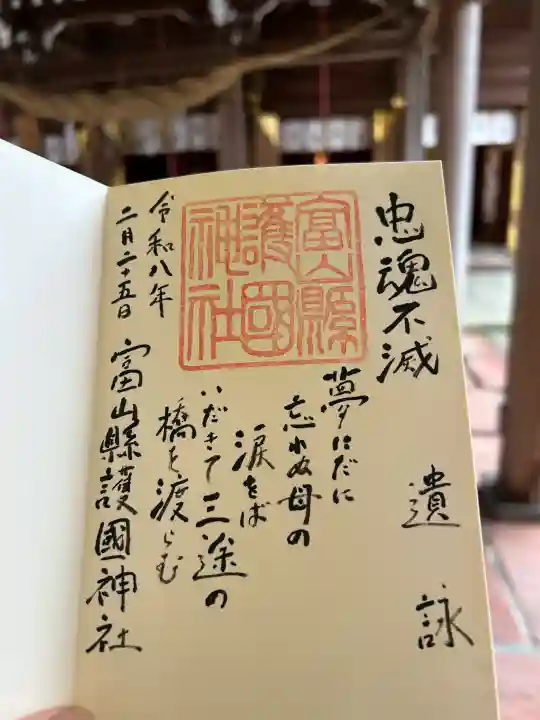 忠魂不滅
遺詠
夢にだに
忘れぬ母の
涙をば
いだきて三途の
橋を渡らむ
富山縣
護國
神社
令和八年
二月二十五日
富山縣護國神社